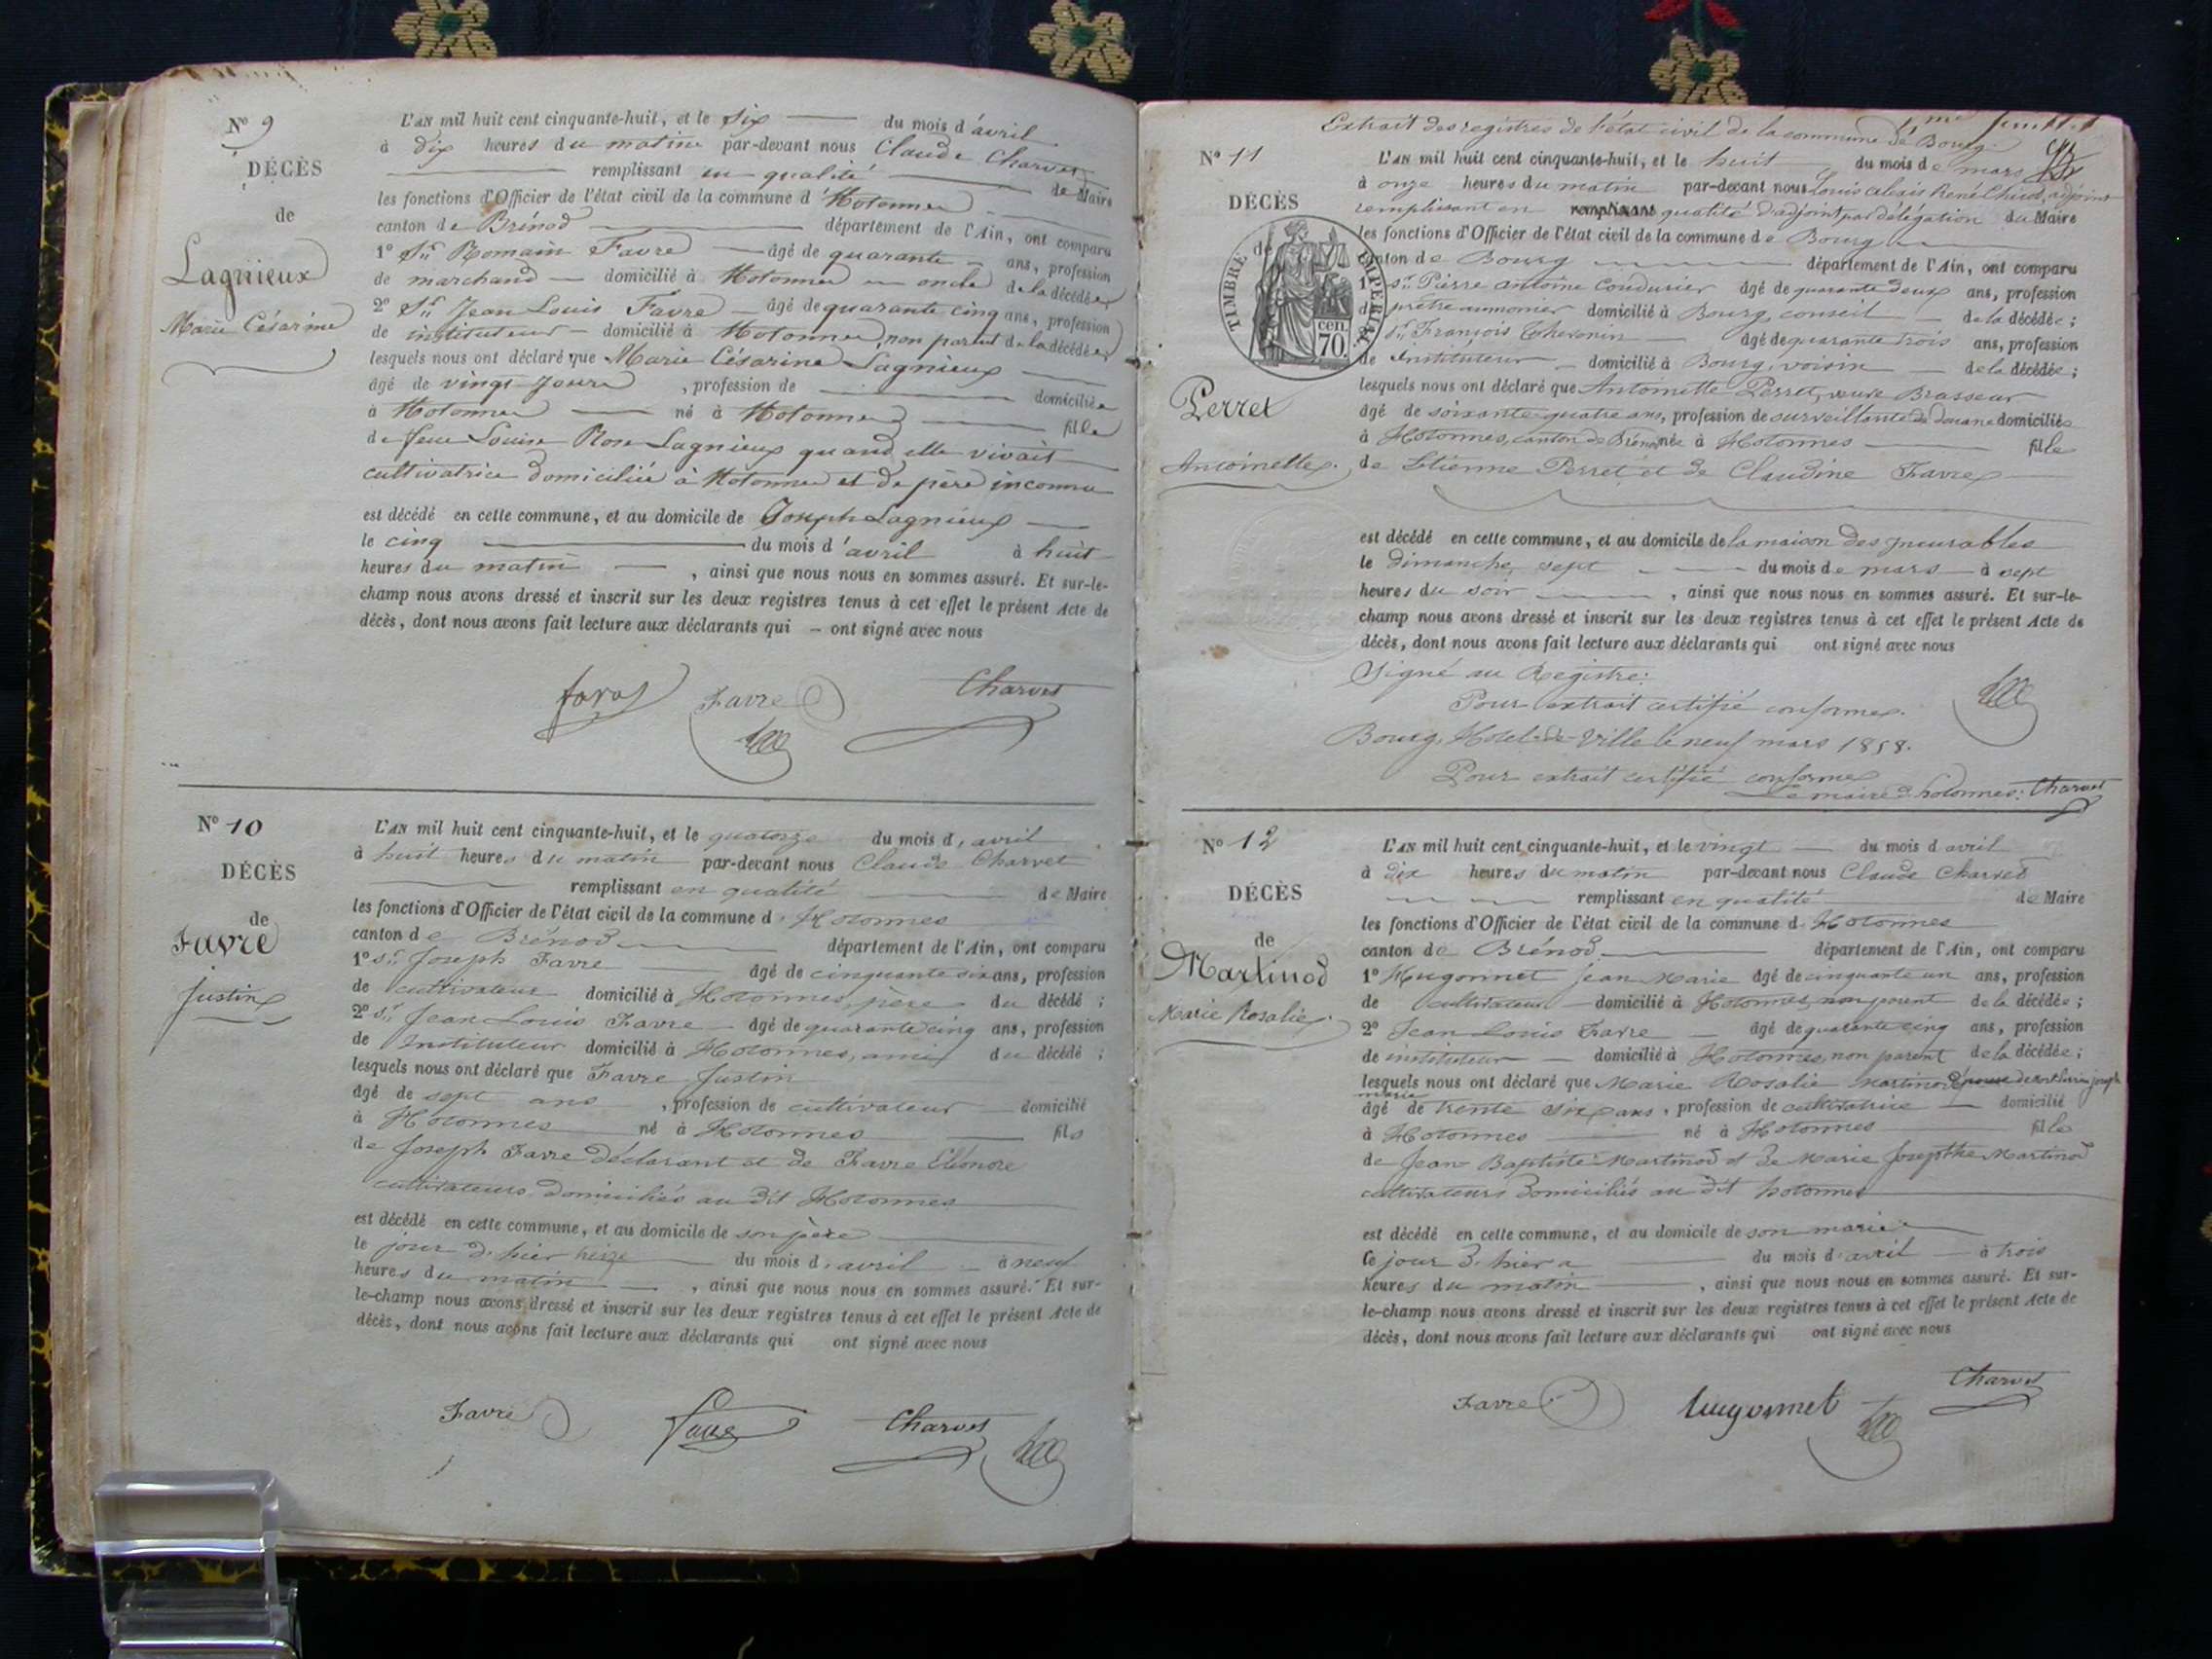 N° 9
DÉCÈS
de
Lagnieux
Marie Césarine
L'AN mil huit cent cinquante-huit, et le six du mois d'avril
à dix heures du matin par-devant nous Claude Charvet
remplissant en qualité de Maire
les fonctions d'Officier de l'état civil de la commune d'Hotonnes
canton de Brénod département de l'Ain, ont comparu
1° Sr Romain Favre âgé de quarante ans, profession
de marchand domicilié à Hotonnes oncle de la décédée
2° Sr Jean Louis Favre âgé de quarante cinq ans, profession
de instituteur domicilié à Hotonnes, non parent de la décédée
lesquels nous ont déclaré que Marie Césarine Lagnieux
âgé de vingt jours, profession de domiciliée
à Hotonnes né à Hotonnes fille
de feue Louise Rose Lagnieux quand elle vivait
cultivatrice domiciliée à Hotonnes et de père inconnu
est décédé en cette commune, et au domicile de Joseph Lagnieux
le cinq du mois d'avril à huit
heures du matin, ainsi que nous nous en sommes assuré. Et sur-le-
champ nous avons dressé et inscrit sur les deux registres tenus à cet effet le présent Acte de
décès, dont nous avons fait lecture aux déclarants qui ont signé avec nous
favre Favre Charvet
N° 10
DÉCÈS
de
Favre
Justin
L'AN mil huit cent cinquante-huit, et le quatorze du mois d'avril
à huit heures du matin par-devant nous Claude Charvet
remplissant en qualité de Maire
les fonctions d'Officier de l'état civil de la commune d'Hotonnes
canton de Brénod département de l'Ain, ont comparu
1° Sr Joseph Favre âgé de cinquante six ans, profession
de cultivateur domicilié à Hotonnes, père du décédé ;
2° Sr Jean Louis Favre âgé de quarante cinq ans, profession
de Instituteur domicilié à Hotonnes, ami du décédé ;
lesquels nous ont déclaré que Favre Justin
âgé de sept ans, profession de cultivateur domicilié
à Hotonnes né à Hotonnes fils
de Joseph Favre déclarant et de Favre Eléonore
cultivateurs domiciliés au dit Hotonnes
est décédé en cette commune, et au domicile de son père
le jour d'hier treize du mois d'avril à neuf
heures du matin, ainsi que nous nous en sommes assuré. Et sur-
le-champ nous avons dressé et inscrit sur les deux registres tenus à cet effet le présent Acte de
décès, dont nous avons fait lecture aux déclarants qui ont signé avec nous
Favre favre Charvet
Extrait des registres de l'état civil de la commune de Bourg.
N° 11
DÉCÈS
de
TIMBRE IMPERIAL
cen.
70.
Perret
Antoinette.
L'AN mil huit cent cinquante-huit, et le huit du mois de mars
à onze heures du matin par-devant nous Louis René adjoint
remplissant en remplissant qualité d'adjoint par délégation du Maire
les fonctions d'Officier de l'état civil de la commune de Bourg
canton de Bourg département de l'Ain, ont comparu
1° Sr Pierre antoine Coudurier âgé de quarante deux ans, profession
de prêtre aumonier domicilié à Bourg, conseil de la décédée ;
Sr François Thevenin âgé de quarante trois ans, profession
de Instituteur domicilié à Bourg, voisin de la décédée ;
lesquels nous ont déclaré que Antoinette Perret, veuve Brasseur
âgé de soixante quatre ans, profession de surveillante de douane domiciliée
à Hotonnes, canton de Brénod née à Hotonnes fille
de Etienne Perret et de Claudine Favre
est décédé en cette commune, et au domicile de la maison des incurables
le dimanche, sept du mois de mars à sept
heures du soir, ainsi que nous nous en sommes assuré. Et sur-le-
champ nous avons dressé et inscrit sur les deux registres tenus à cet effet le présent Acte de
décès, dont nous avons fait lecture aux déclarants qui ont signé avec nous
Signé au Registre:
Pour extrait certifié conforme.
Bourg, Hotel-de-Ville le neuf mars 1858.
Pour extrait certifié conforme
Le maire d'hotonnes: Charvet
N° 12
DÉCÈS
de
Martinod
Marie Rosalie.
L'AN mil huit cent cinquante-huit, et le vingt du mois d'avril
à dix heures du matin par-devant nous Claude Charvet
remplissant en qualité de Maire
les fonctions d'Officier de l'état civil de la commune d'Hotonnes
canton de Brénod. département de l'Ain, ont comparu
1° Hugonnet Jean Marie âgé de cinquante un ans, profession
de cultivateur domicilié à Hotonnes, non parent de la décédée ;
2° Jean Louis Favre âgé de quarante cinq ans, profession
de instituteur domicilié à Hotonnes, non parent de la décédée ;
lesquels nous ont déclaré que Marie Rosalie Martinod épouse de joseph
marie
âgé de trente six ans, profession de cultivatrice domicilié
à Hotonnes né à Hotonnes fille
de Jean-Baptiste Martinod et de Marie Josepthe Martinod
cultivateurs domiciliés au dit hotonnes
est décédé en cette commune, et au domicile de son marie
le jour d'hier a du mois d'avril à trois
heures du matin, ainsi que nous nous en sommes assuré. Et sur-
le-champ nous avons dressé et inscrit sur les deux registres tenus à cet effet le présent Acte de
décès, dont nous avons fait lecture aux déclarants qui ont signé avec nous
Favre hugonnet Charvet